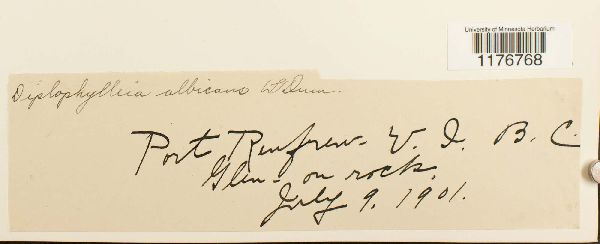 University of Minnesota Herbarium
1176768
Diplophylleia albicans
Port Renfrew V. I. B. C.
Glen - on rock.
July 9. 1901.